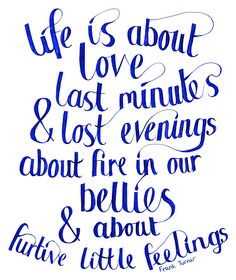 life is about
love
last minutes
& lost evenings
about fire in our
bellies
& about
furtive little feelings
Frank Turner